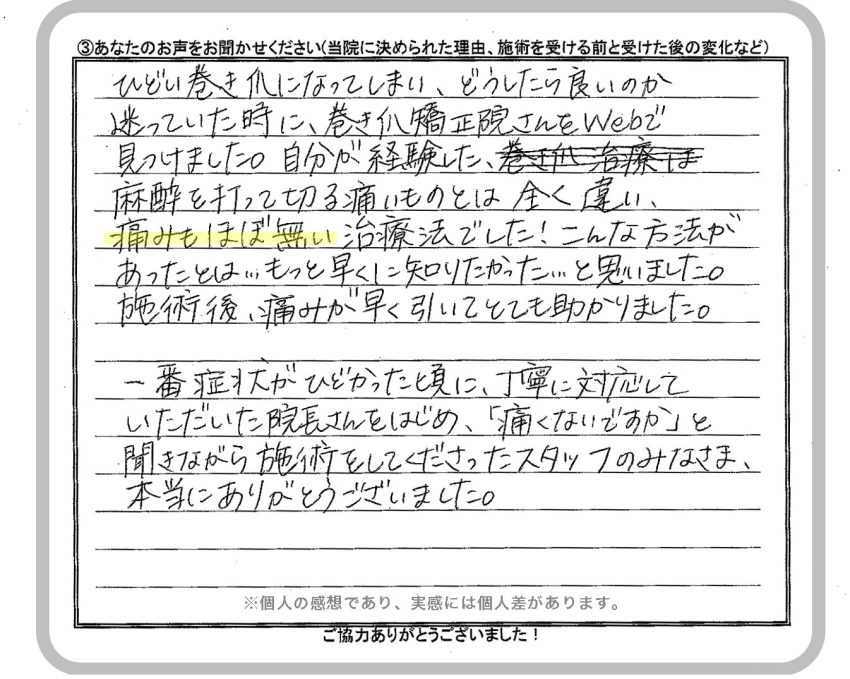 ③あなたのお声をお聞かせください(当院に決められた理由、施術を受ける前と受けた後の変化など)
ひどい巻き爪になってしまい、どうしたら良いのか
迷っていた時に、巻き爪矯正院さんをWebで
見つけました。自分が経験した、巻き爪治療は
麻酔を打って切る痛いものとは全く違い、
痛みもほぼ無い治療法でした!こんな方法が
あったとは…もっと早くに知りたかった…と思いました。
施術後、痛みが早く引いてとても助かりました。
一番症状がひどかった頃に、丁寧に対応して
いただいた院長さんをはじめ、「痛くないですか」と
聞きながら施術をしてくださったスタッフのみなさま、
本当にありがとうございました。
※個人の感想であり、実感には個人差があります。
ご協力ありがとうございました!